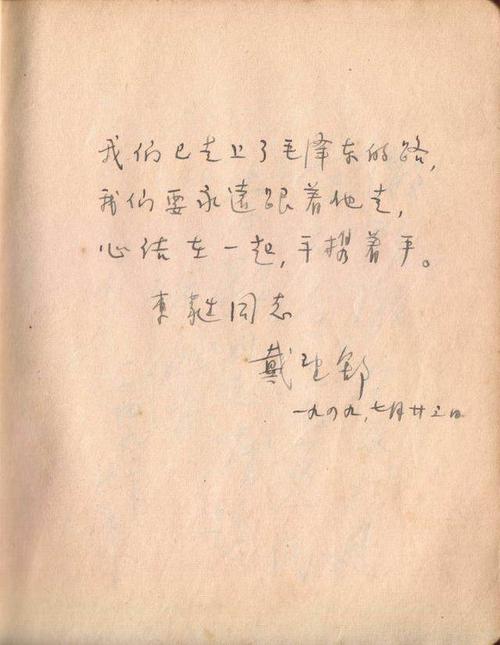 我们已走上了毛泽东的路，
我们要永远跟着他走，
心结在一起，手携着手。
同志
戴望舒
一九四九，七月廿三日